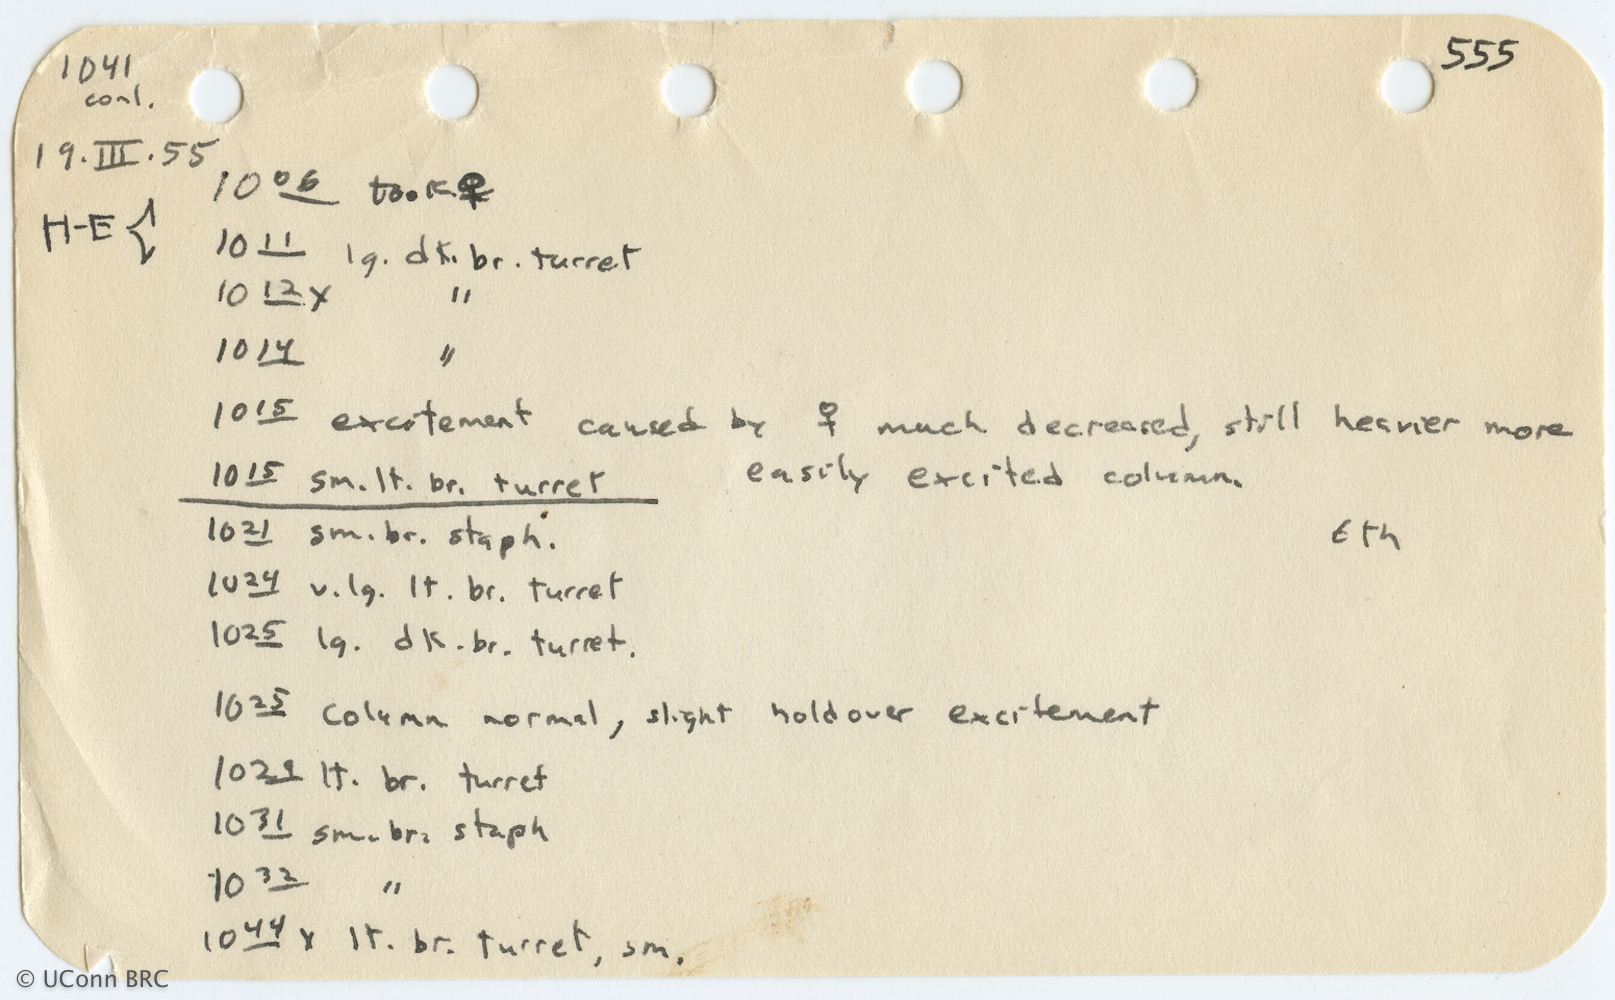 1041
cont.
555
19.III.55
H-E {
10 06 took ♀
10 11 lg. dk. br. turret
10 12 x "
10 14 "
10 15 excitement caused by ♀ much decreased, still heavier more
easily excited column.
10 15 sm. lt. br. turret
10 21 sm. br. staph.
6th
10 24 v. lg. lt. br. turret
10 25 lg. dk. br. turret.
10 25 column normal, slight holdover excitement
10 29 lt. br. turret
10 31 sm. br. staph
10 32 "
10 44 x lt. br. turret, sm.
© UConn BRC